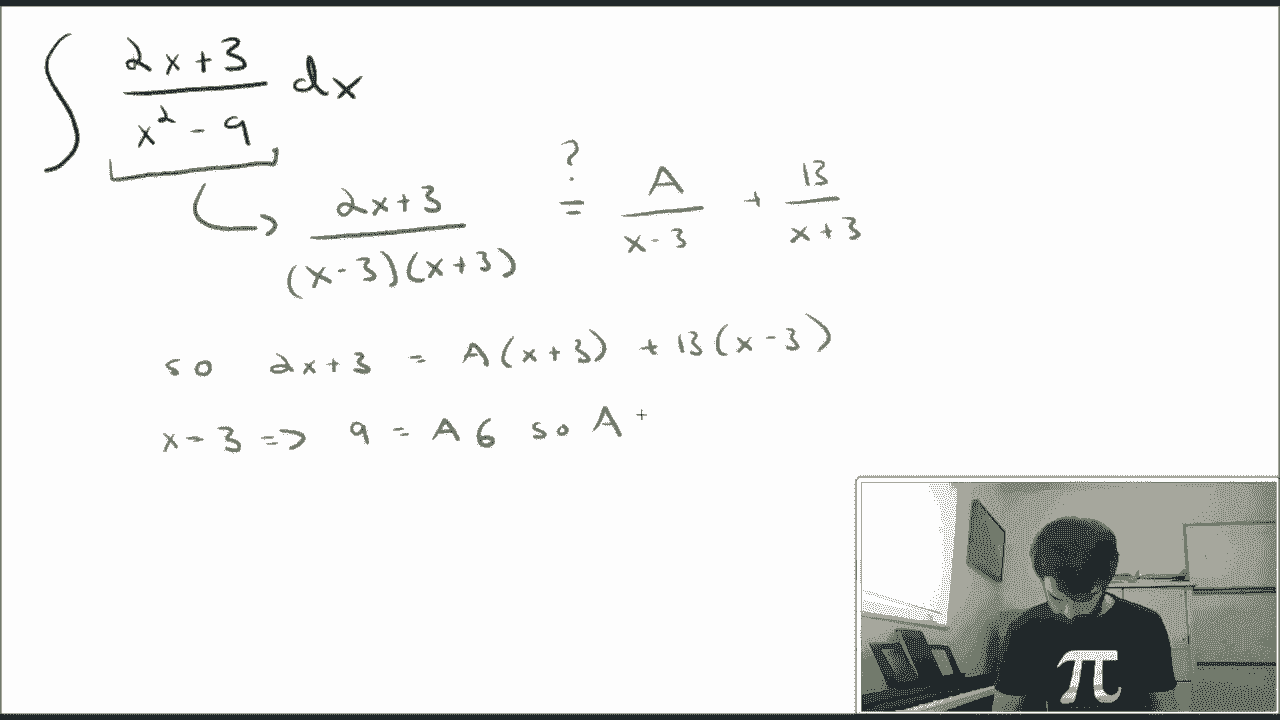 ∫ (2x+3)/(x² - 9) dx
(2x+3)/((x-3)(x+3)) ?= A/(x-3) + B/(x+3)
so 2x+3 = A(x+3) + B(x-3)
x = 3 => 9 = A 6 so A
π